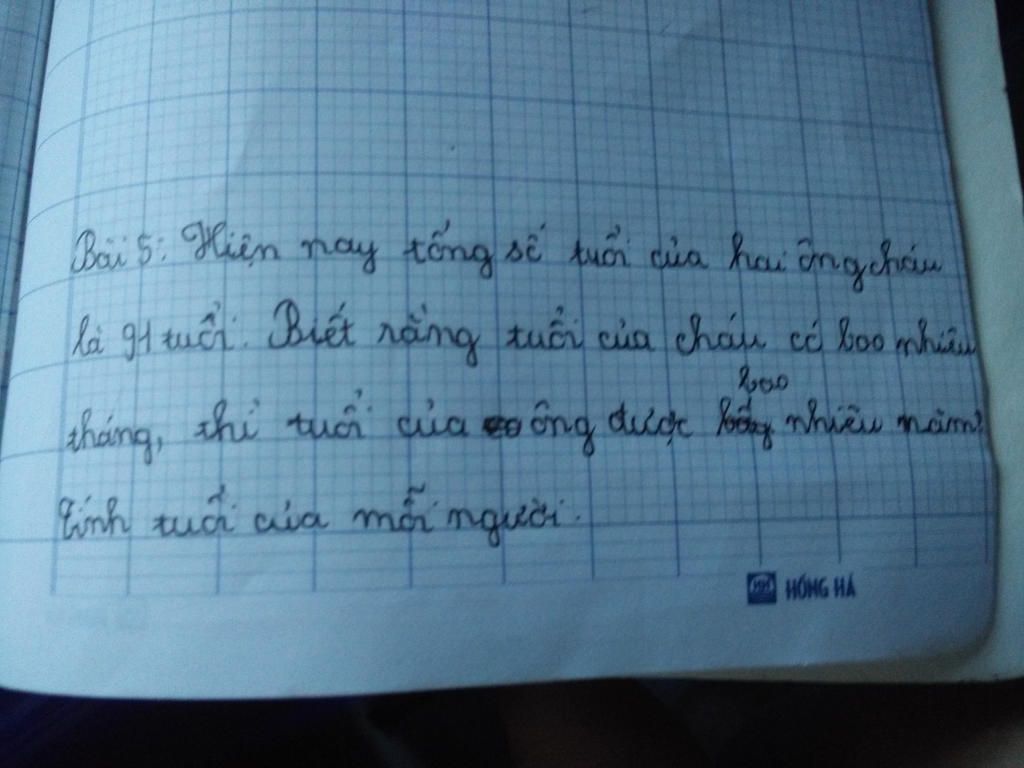 Bài 5: Hiện nay tổng số tuổi của hai ông cháu
là 91 tuổi. Biết rằng tuổi của cháu có bao nhiêu
bao
tháng, thì tuổi của ông được nhiêu năm?
Tính tuổi của mỗi người.
HH HỒNG HÀ